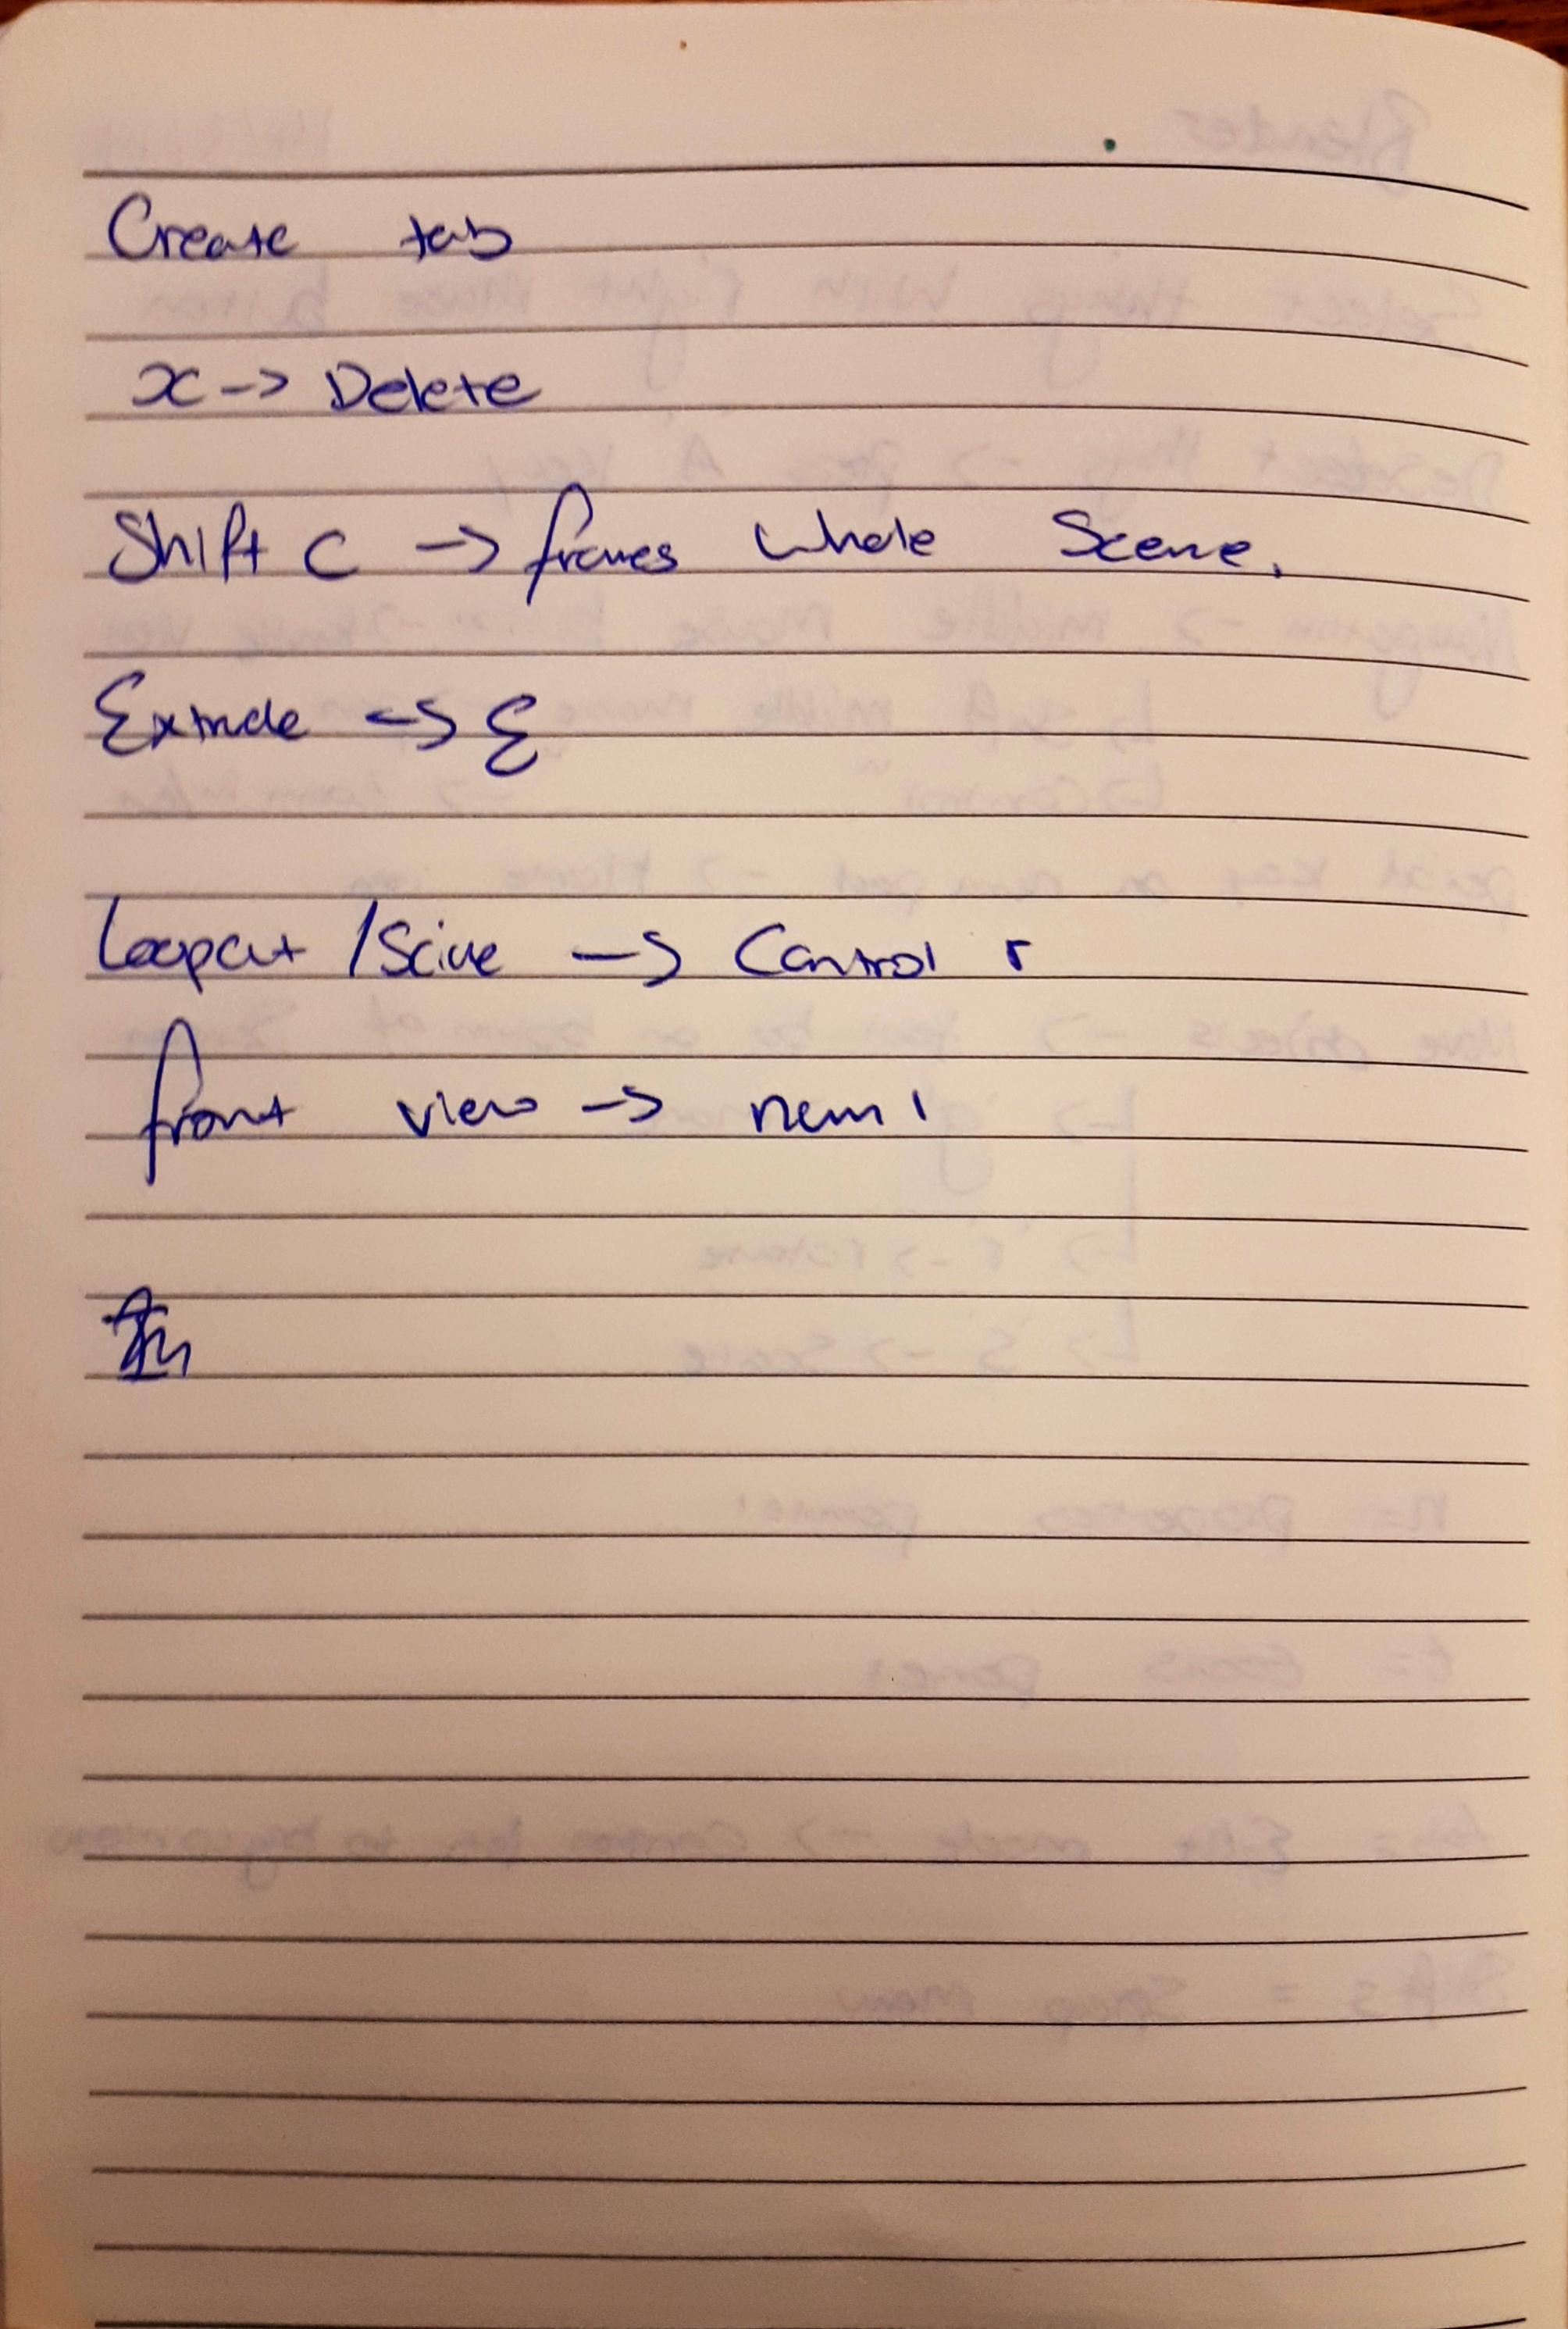 Create tab
x -> Delete
Shift C -> frames whole Scene.
Extrude -> E
Loopcut / Scive -> Control r
front view -> num 1